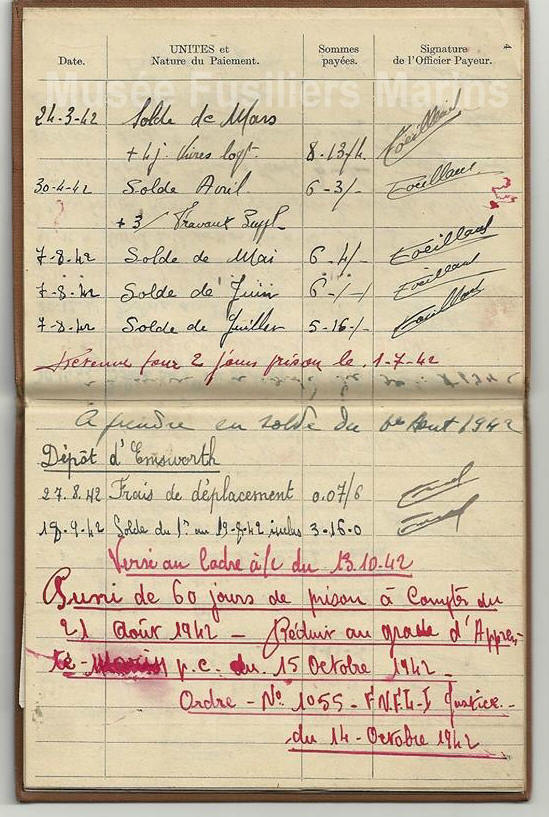 4
Date. UNITES et Nature du Paiement. Sommes payées. Signature de l'Officier Payeur.
Musée Fusiliers Marins
24-3-42 Solde de Mars
+ 4j. vivres logt. 8-13/4.
30-4-42 Solde Avril 6-3/-
+ 3/ Travaux Suppl.
7-8-42 Solde de Mai 6-4/-
7-8-42 Solde de Juin 6-/-
7-8-42 Solde de Juillet 5-16-/-
Retenue pour 2 jours prison le 1-7-42
A prendre en solde du 1er Aout 1942
Dépôt d'Emsworth
27.8.42 Frais de déplacement 0.07/6
18-9-42 Solde du 1er au 19-8-42 inclus 3-16-0
Versé au Cadre à/c du 13.10.42
Puni de 60 jours de prison à Compter du
21 Août 1942 - Réduit au grade d'Appren-
ti - Marin p.c. du 15 Octobre 1942 -
Ordre - No 1055 - F.N.F.L-J Justice. -
du 14 - Octobre 1942